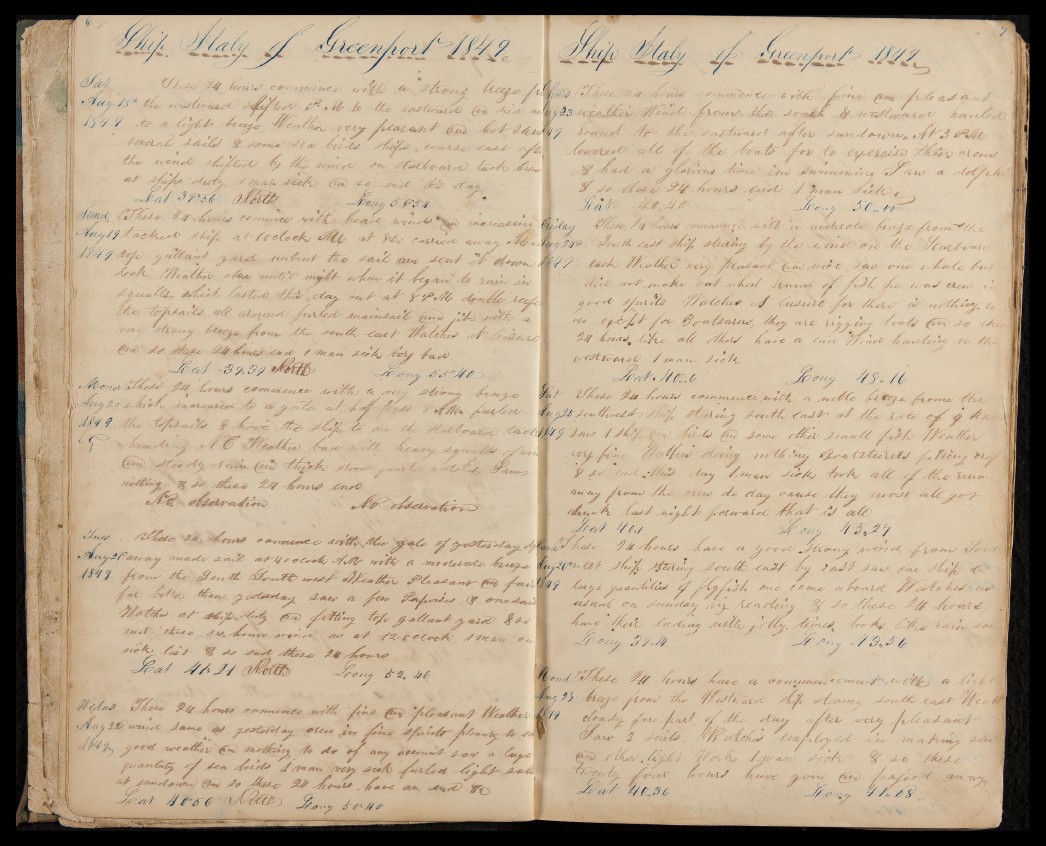 6
Ship Italy of Greenport 1849.
Sat These 24 hours commence with a strong breeze
Aug 18th the westward shifted P.M to the eastward and died
1849 to a light breeze Weather very pleasant and hot
sails & some sea birds ships course east
the wind shifted by the wind on starboard tack
at ships duty 1 man sick and so end the day
Lat 39=56 North Long 58=54
Sund These 24 hours commence with head wind and increasing
Aug 19 tacked ship at 1 oclock AM at carried away
1849 top gallant yard unbent the sail and sent it down
look Weather clear until night when it began to rain in
squalls which lasted this day out at 8 P.M double reef
the topsails all around furled mainsail and jib with a
very strong breeze from the south east Watches at leisure
and so these 24 hours end 1 man sick very bad
Lat 39..39 North Long 55=40
Mond These 24 hours commence with a very strong breeze
Aug 20 which increased to a gale at half past AM furled
1849. the topsails & hove the ship to on the starboard tack
heading N E Weather bad with heavy squalls of
and steady rain and thick
nothing & so these 24 hours end
No observation No observation
Tues These 24 hours commence with the gale of yesterday
Aug 21 away made sail at 4 oclock AM with a moderate breeze
1849 from the South South west Weather Pleasant and fair
far better than yesterday saw a few Porpoises & one sail
Watches at ships duty and fitting top gallant yard & so
these 24 hours as at 12 oclock 1 man on
sick list & so end these 24 hours
Lat 41=21 North Long 52.40
Wednes These 24 hours commence with fine and pleasant Weather
Aug 22 wind same as yesterday crew in fine spirits plenty to eat
1849 good weather and nothing to do of any account saw a large
quantity of sea birds 1 man very sick furled light sails
at sundown and so these 24 hours have an end &c
Lat 40=56 North Long 50=40
7
Ship Italy of Greenport 1849.
These 24 hours commence with fine and pleasant
Aug 23 weather Wind from the south & westward hauled
round to the eastward after sundown. At 5 P.M
lowered all of the boats for to exercise their crews
& had a glorious time in swimming Saw a dolphin
& so these 24 hours end 1 man sick
Lat 40.40 Long 50..00
Friday These 24 hours commence with a moderate breeze from the
Aug 24 South east ship steering by the wind on the Starboard
1849 tack Weather very pleasant and nice saw one whale but
did not make out what kind of fish he was crew in
good spirits Watches at leisure for there is nothing to
do except for Boatsteerers, they are rigging boats and so these
24 hours, like all others have a end Wind hauling to the
westward 1 man sick
Lat 40..6 Long 48..16
Sat These 24 hours commence with a breeze from the
Aug 25 southwest ship steering south east at the rate of 9
1849 saw 1 ship and birds and some other small fish Weather
very fine Watches doing nothing Boatsteerers fitting
& so end this day 1 man sick took all of the rum
away from the crew to day cause they most all got
drunk last night forward that is all
Lat 40.1 Long 45..29
These 24 hours have a good strong wind from
Aug 26 west ship steering south east by east saw one ship and
1849 large quantities of flyfish one come aboard Watches as
usual on sunday reading & so these 24 hours
have their ending with jolly times, looks like rain
Long 39..14 Long 43..36
Mond These 24 hours have a commencement with a light
Aug 27 breeze from the Westward ship steering south east Weather
1849 cloudy fore part of the day after very pleasant
Saw 3 sails Watches employed in making
and other light Work 1 man sick & so these
twenty four hours have gone and passed away
Lat 40..36 Long 41..08